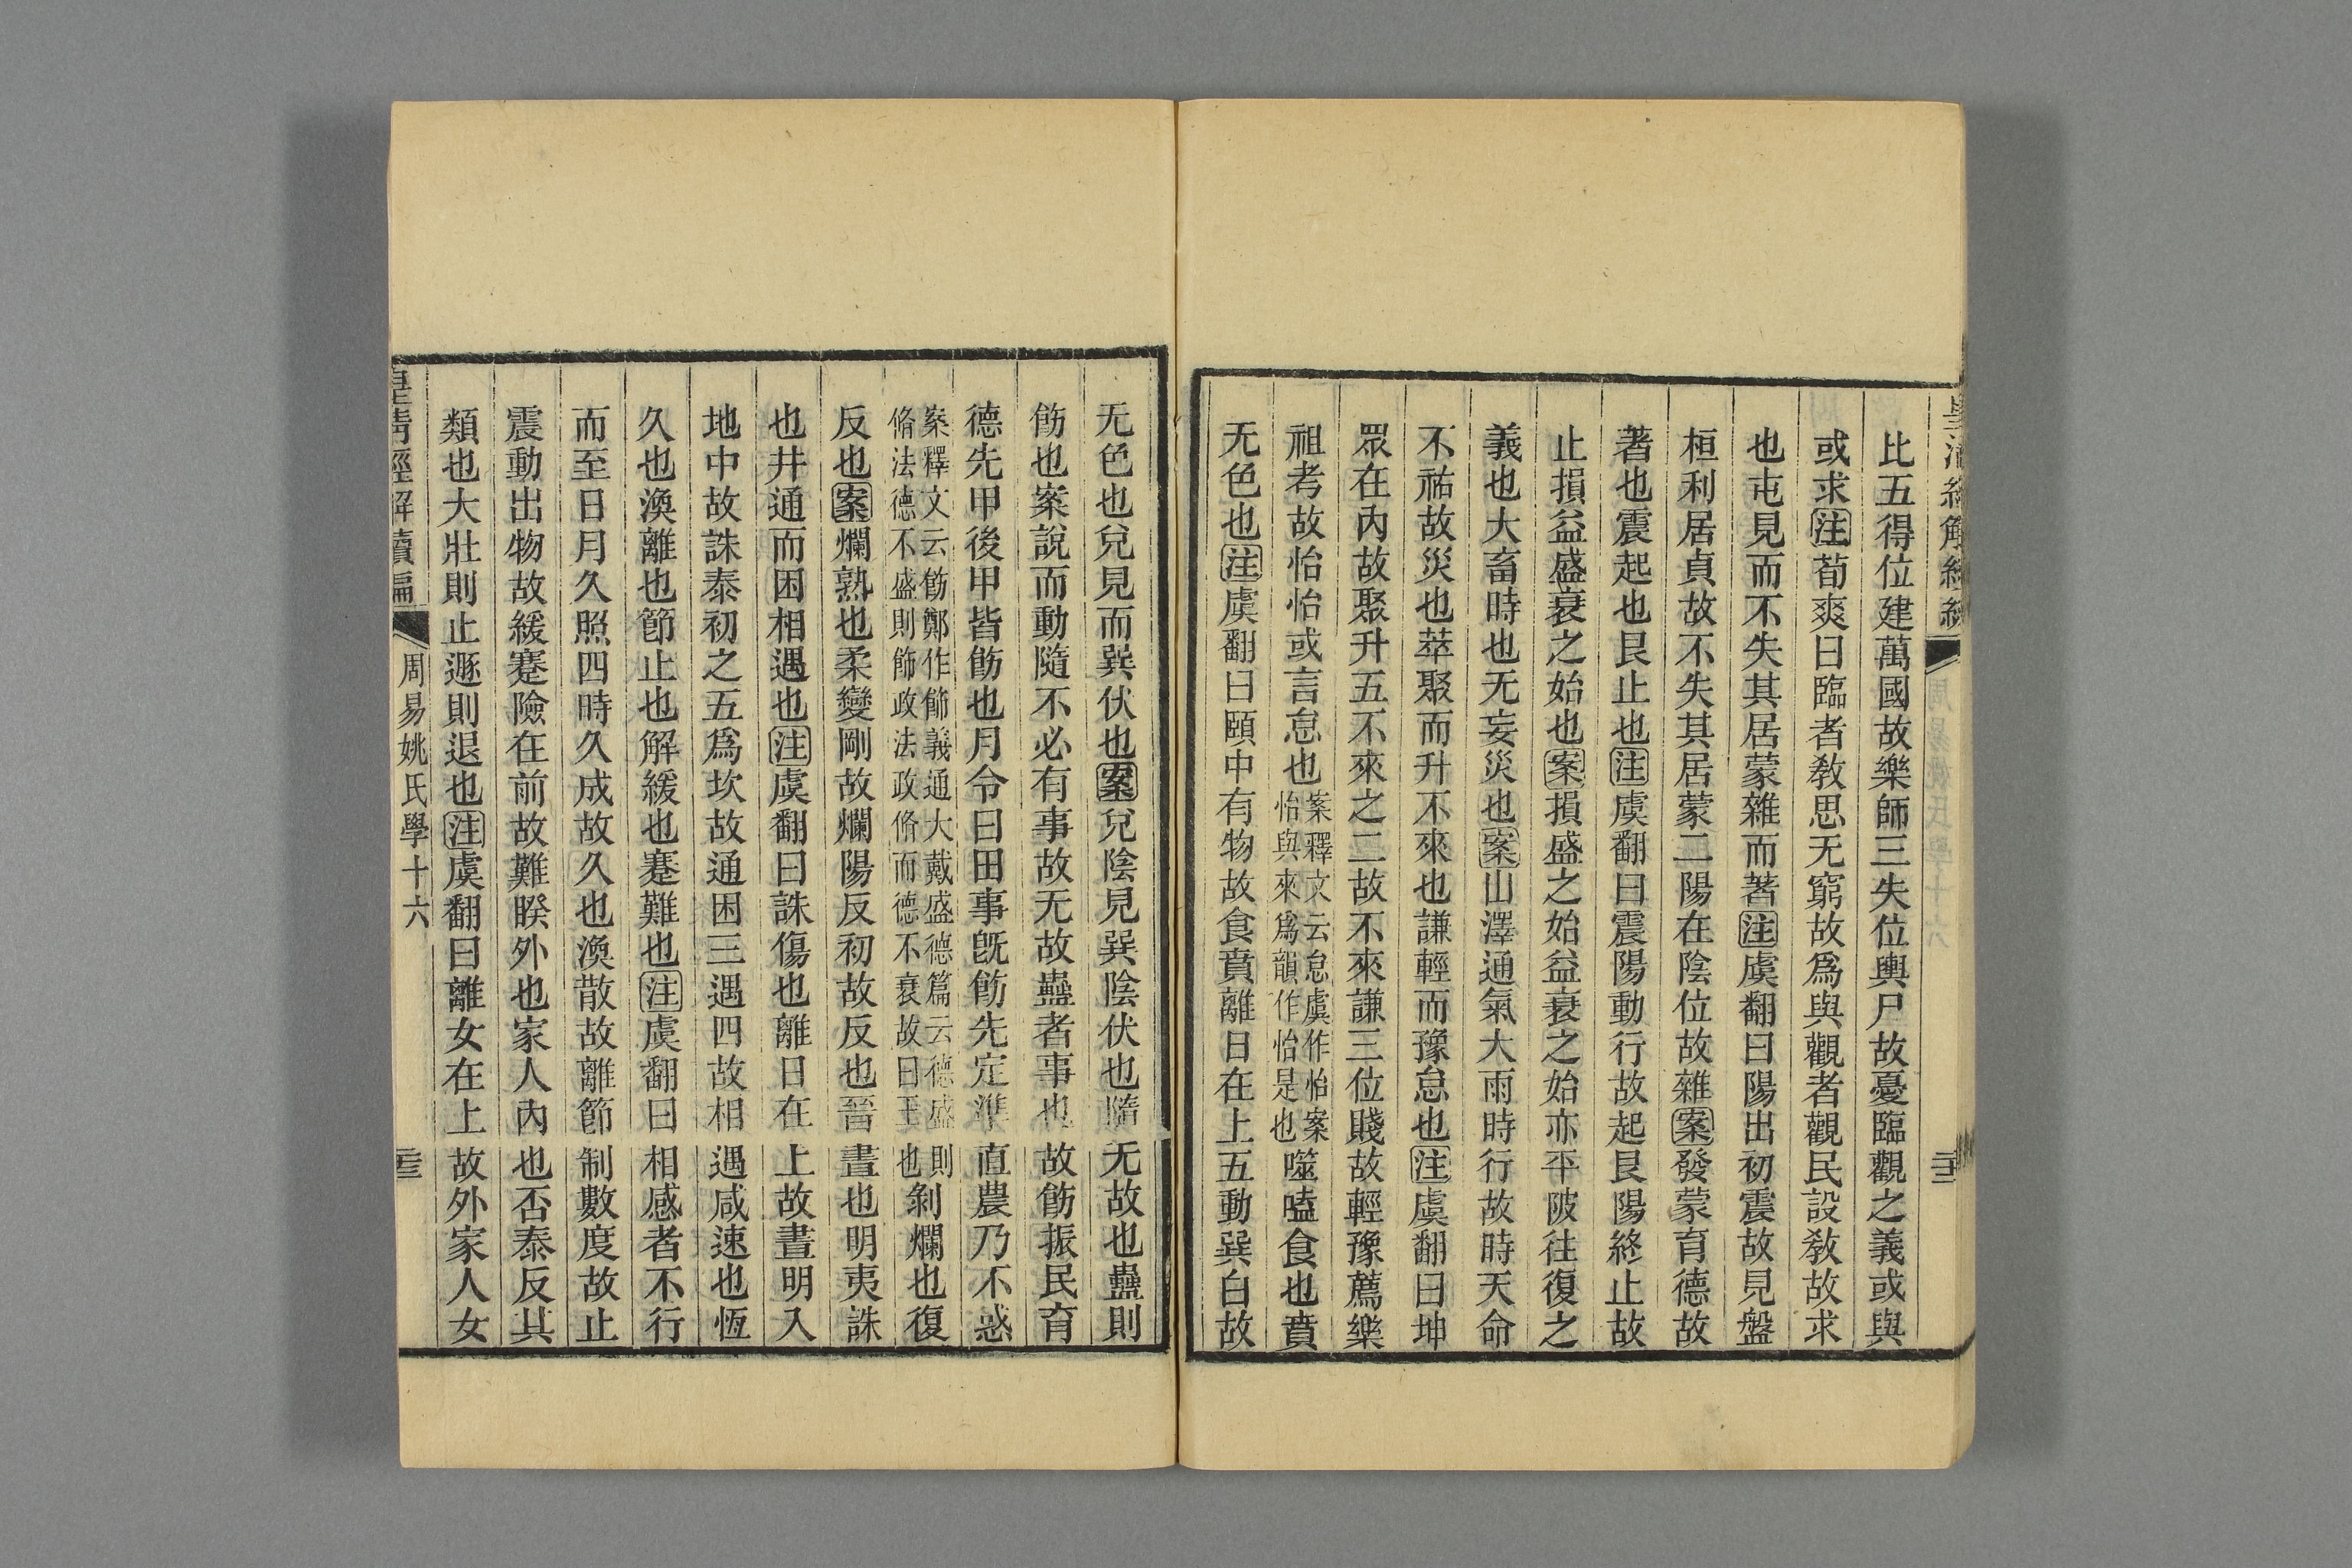 比五得位建萬國故樂師三失位輿尸故憂臨觀之義或與
或求注荀爽曰臨者敎思无窮故爲與觀者觀民設敎故求
也屯見而不失其居蒙雜而著注虞翻曰陽出初震故見盤
桓利居貞故不失其居蒙二陽在陰位故雜案發蒙育德故
著也震起也艮止也注虞翻曰震陽動行故起艮陽終止故
止損益盛衰之始也案損盛之始益衰之始亦平陂往復之
義也大畜時也无妄災也案山澤通氣大雨時行故時天命
不祐故災也萃聚而升不來也謙輕而豫怠也注虞翻曰坤
眾在內故聚升五不來之二故不來謙三位賤故輕豫薦樂
祖考故怡怡或言怠也案釋文云怠虞作怡案怡與來爲韻作怡是也噬嗑食也賁
无色也注虞翻曰頤中有物故食賁離日在上五動巽白故
无色也兌見而巽伏也案兌陰見巽陰伏也隨无故也蠱則
飭也案說而動隨不必有事故无故蠱者事也故飭振民育
德先甲後甲皆飭也月令曰田事旣飭先定準直農乃不惑
案釋文云飭鄭作飾義通大戴盛德篇云德盛則脩法德不盛則飾政法政脩而德不衰故曰王也剝爛也復
反也案爛熟也柔變剛故爛陽反初故反也晉晝也明夷誅
也井通而困相遇也注虞翻曰誅傷也離日在上故晝明入
地中故誅泰初之五爲坎故通困三遇四故相遇咸速也恆
久也渙離也節止也解緩也蹇難也注虞翻曰相感者不行
而至日月久照四時久成故久也渙散故離節制數度故止
震動出物故緩蹇險在前故難睽外也家人內也否泰反其
類也大壯則止遯則退也注虞翻曰離女在上故外家人女
皇淸經解續編
周易姚氏學十六